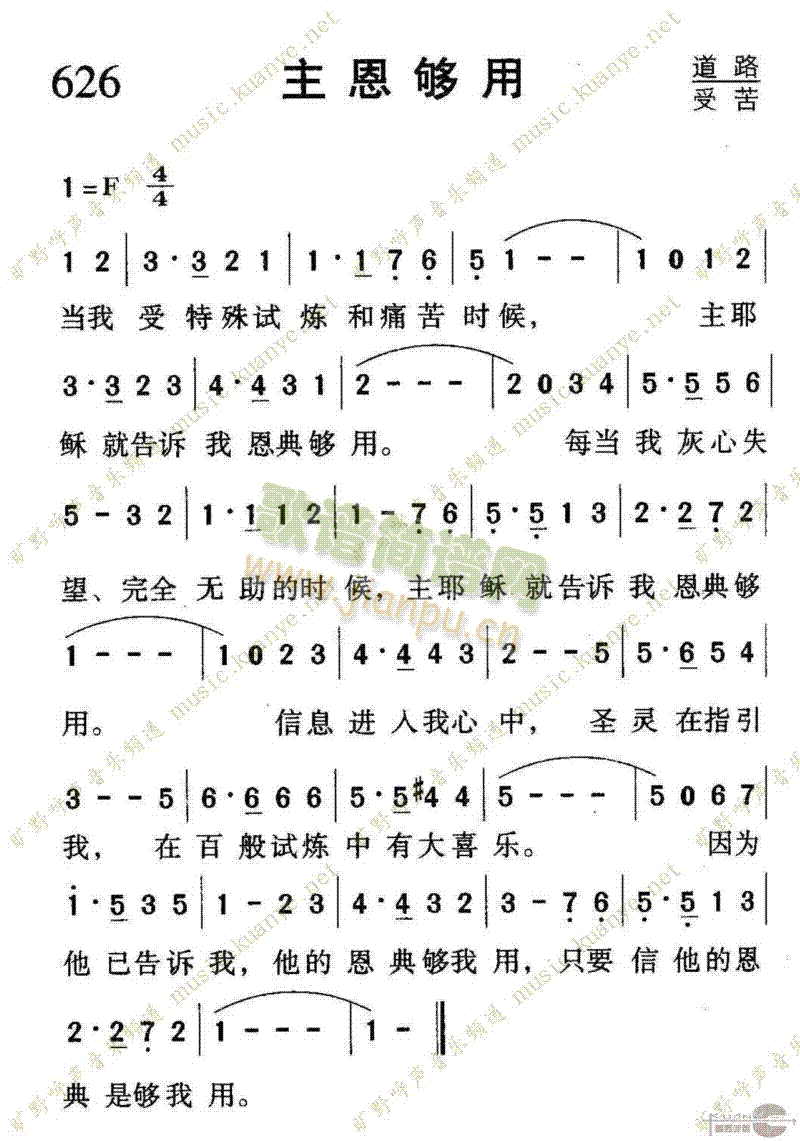 626
主恩够用
道路
受苦
1=F 4/4
1 2 | 3·3 2 1 | 1·1 7 6 | 5 1 - - | 1 0 1 2 |
当我 受 特殊试 炼 和痛苦 时候， 主耶
3·3 2 3 | 4·4 3 1 | 2 - - - | 2 0 3 4 | 5·5 5 6 |
稣 就告诉 我 恩典够 用。 每当 我 灰心失
5 - 3 2 | 1·1 1 2 | 1 - 7 6 | 5·5 1 3 | 2·2 7 2 |
望、完全 无 助的时 候，主耶 稣 就告诉 我 恩典够
1 - - - | 1 0 2 3 | 4·4 4 3 | 2 - - 5 | 5·6 5 4 |
用。 信息 进 入我心 中， 圣 灵 在指引
3 - - 5 | 6·6 6 6 | 5·5 #4 4 | 5 - - - | 5 0 6 7 |
我， 在 百 般试炼 中 有大喜 乐。 因为
i·5 3 5 | 1 - 2 3 | 4·4 3 2 | 3 - 7 6 | 5·5 1 3 |
他 已告诉 我，他的 恩 典够我 用，只要 信 他的恩
2·2 7 2 | 1 - - - | 1 - ‖
典 是够我 用。
歌谱简谱网
www.jianpu.cn
旷野呼声音乐频道 music.kuanye.net